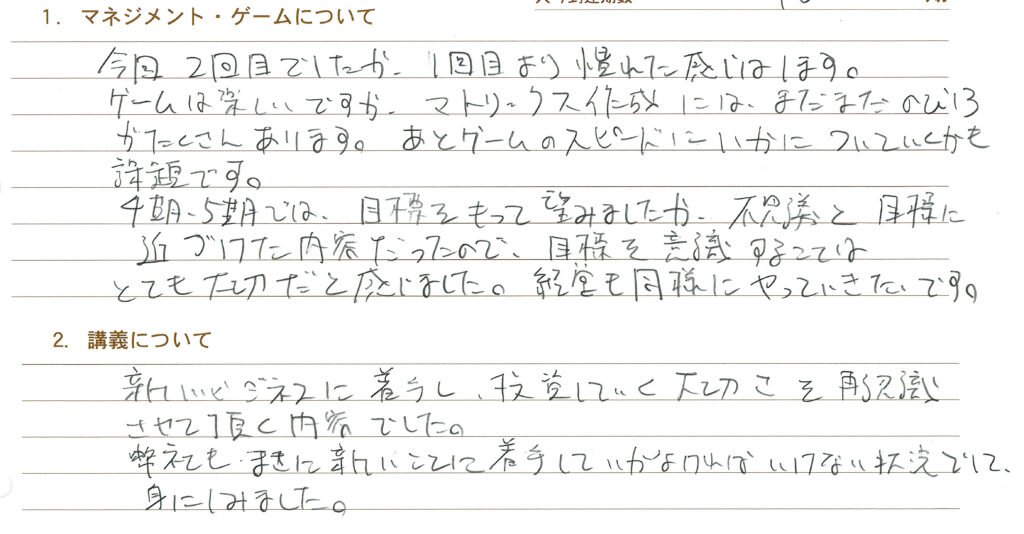 1. マネジメント・ゲームについて
今回 2回目でしたが、1回目より慣れた感じはします。
ゲームは楽しいですが、マトリックス作成には、まだまだのびしろ
がたくさんあります。あとゲームのスピードにいかについていくかも
課題です。
4期、5期では、目標をもって望みましたが、不思議と目標に
近づけた内容だったので、目標を意識することは
とても大切だと感じました。経営も同様にやっていきたいです。
2. 講義について
新しいビジネスに着手し、投資していく大切さを再認識
させて頂く内容でした。
弊社でも、まさに新しいことに着手していかなければいけない状況でして、
身にしみました。